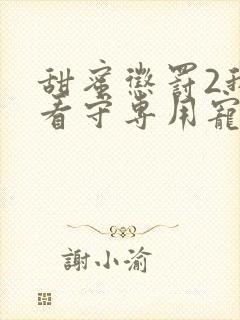 甜蜜懲罰2我
看守専用寵
謝小渝